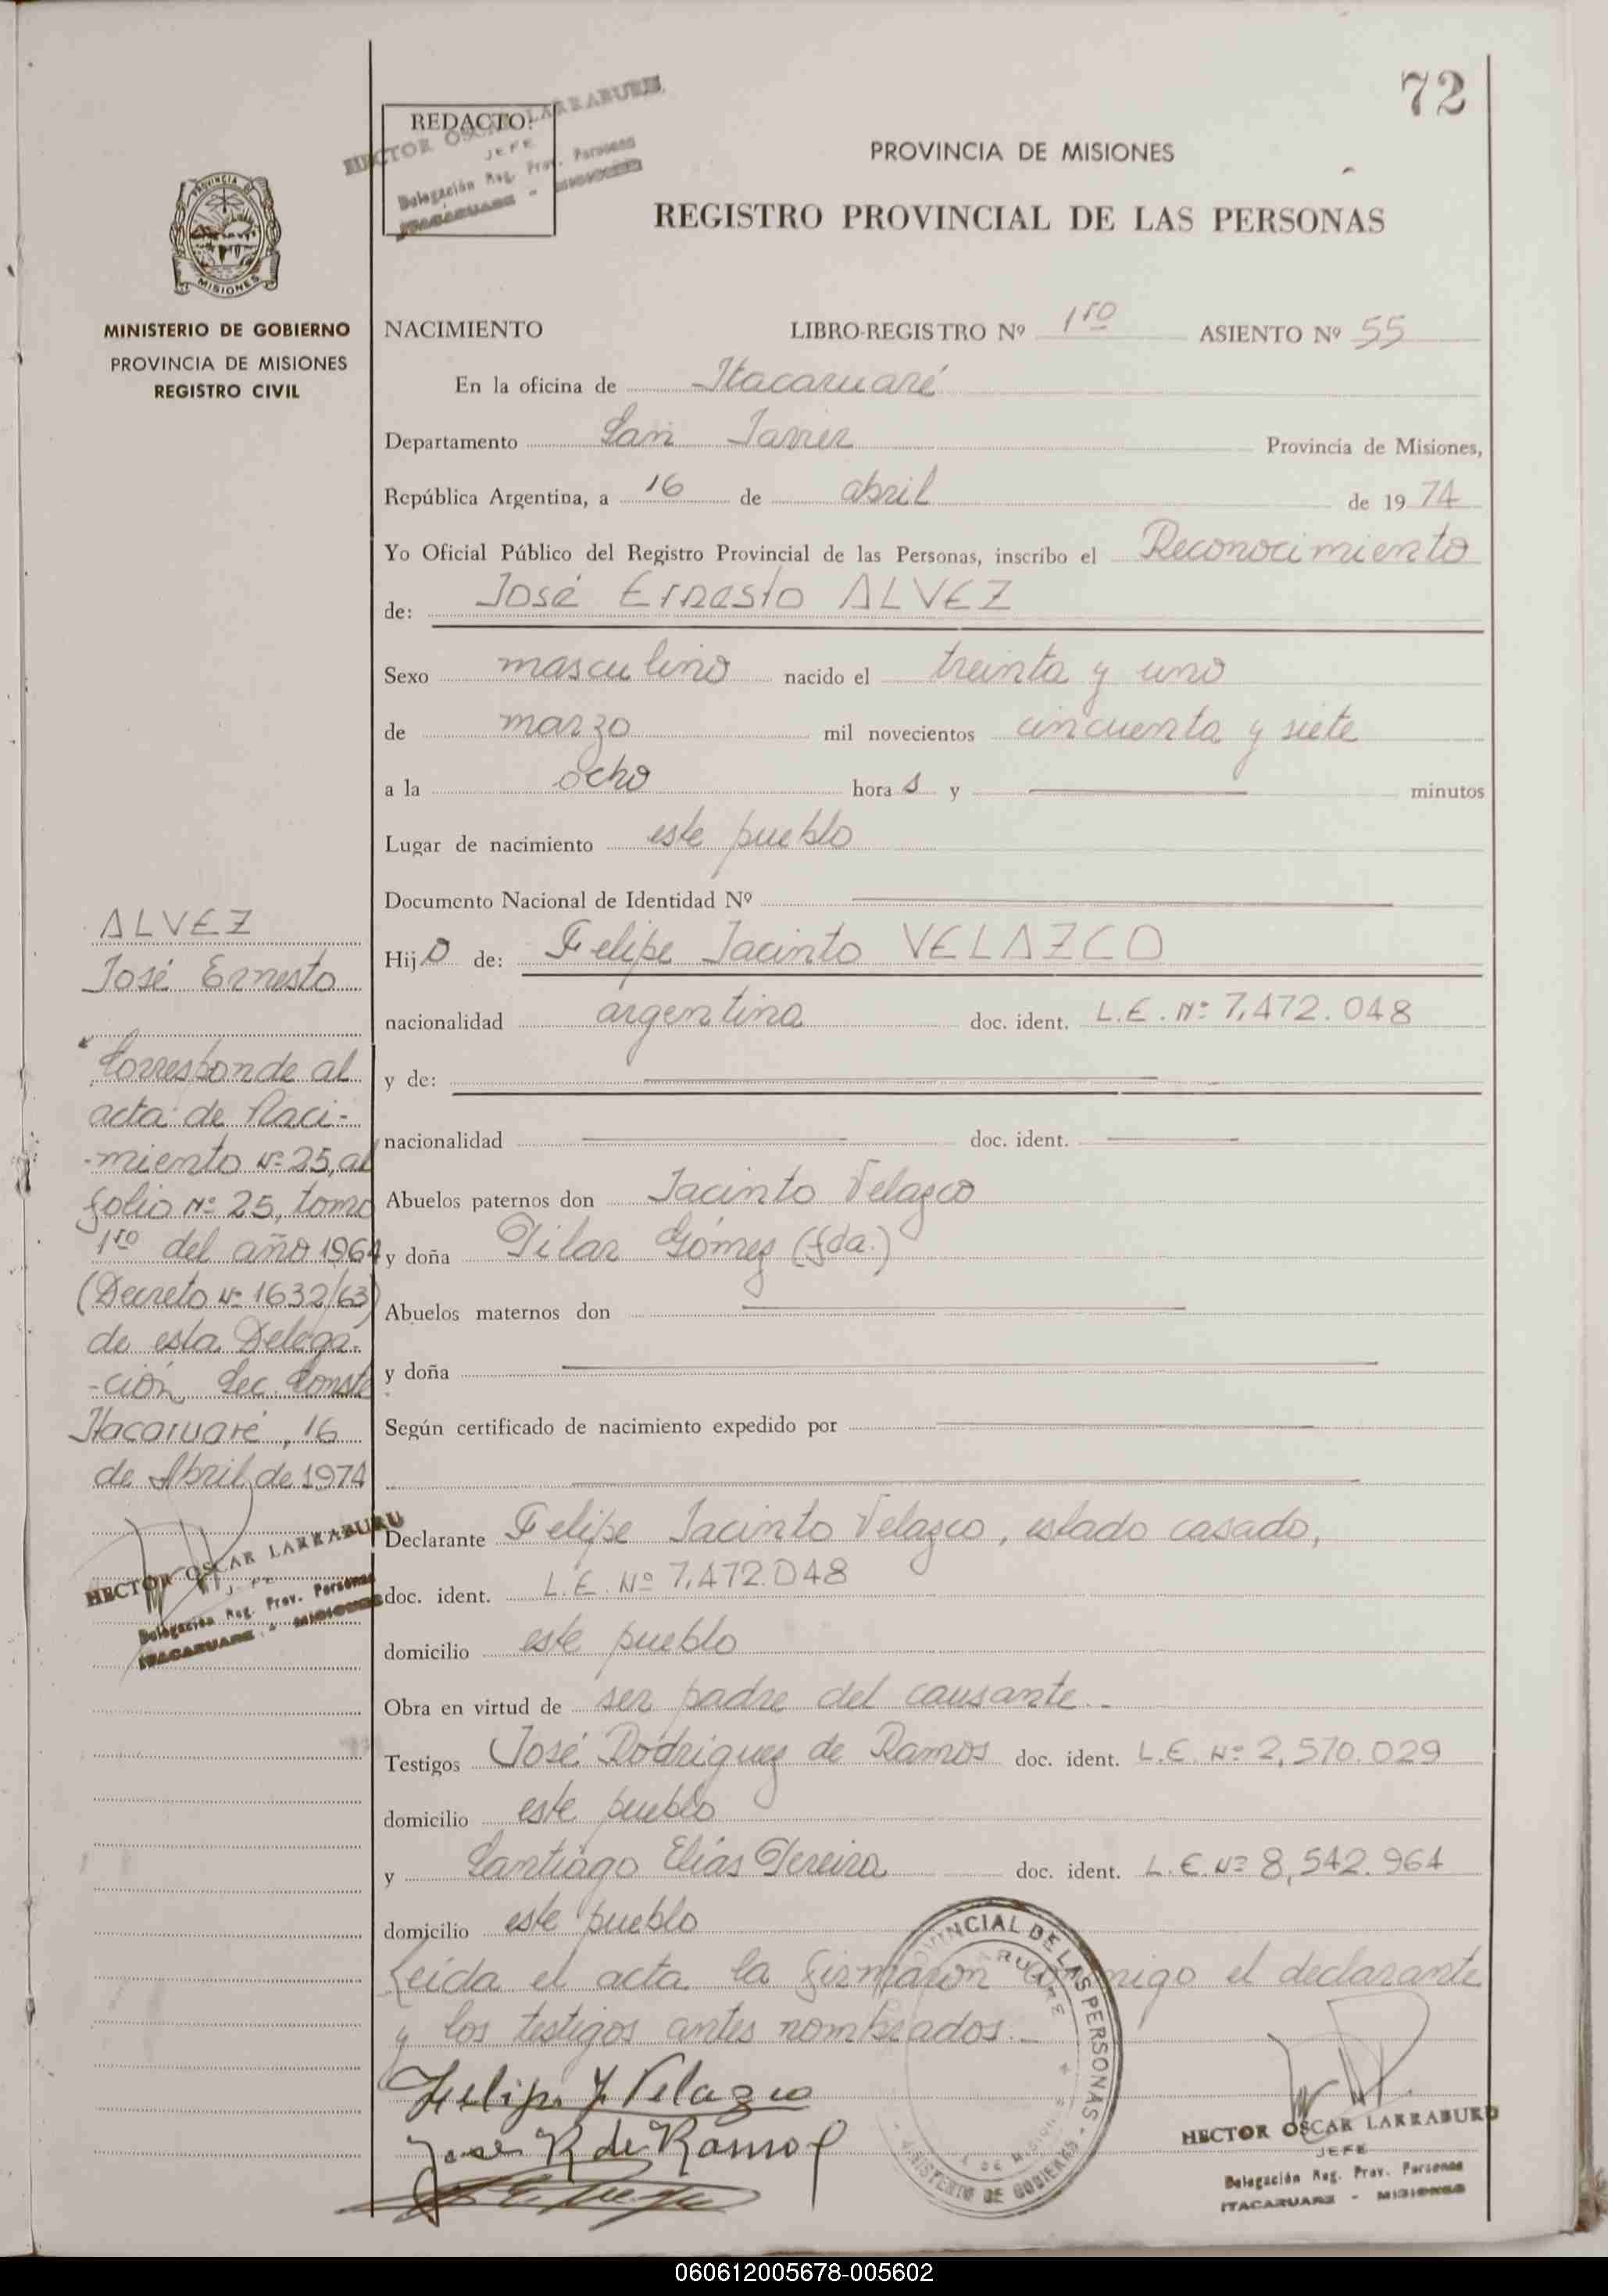 72
REDACTO:
HECTOR OSCAR LARRABURU
JEFE
Delegación Reg. Prov. Personas
ITACARUARE - MISIONES
PROVINCIA DE MISIONES
REGISTRO PROVINCIAL DE LAS PERSONAS
PROVINCIA DE
MISIONES
MINISTERIO DE GOBIERNO
PROVINCIA DE MISIONES
REGISTRO CIVIL
NACIMIENTO LIBRO-REGISTRO Nº 1ro ASIENTO Nº 55
En la oficina de Itacaruaré
Departamento San Javier Provincia de Misiones,
República Argentina, a 16 de abril de 1974
Yo Oficial Público del Registro Provincial de las Personas, inscribo el Reconocimiento
de: José Ernesto ALVEZ
Sexo masculino nacido el treinta y uno
de marzo mil novecientos cincuenta y siete
a la ocho hora s y minutos
Lugar de nacimiento este pueblo
Documento Nacional de Identidad Nº
Hijo de: Felipe Jacinto VELAZCO
nacionalidad argentina doc. ident. L.E. Nº 7,472.048
y de:
nacionalidad doc. ident.
Abuelos paternos don Jacinto Velazco
y doña Pilar Gómez (fda.)
Abuelos maternos don
y doña
Según certificado de nacimiento expedido por
Declarante Felipe Jacinto Velazco, estado casado,
doc. ident. L.E. Nº 7,472.048
domicilio este pueblo
Obra en virtud de ser padre del causante.-
Testigos José Rodriguez de Ramos doc. ident. L.E. Nº 2,570.029
domicilio este pueblo
y Santiago Elías Pereira doc. ident. L.E. Nº 8,542.964
domicilio este pueblo
Leída el acta la firmaron conmigo el declarante
y los testigos antes nombrados.-
Felipe J Velazco
Jose R de Ramos
ALVEZ
José Ernesto
Corresponde al
acta de Naci-
-miento Nº 25, al
folio Nº 25, tomo
1ro del año 1964
(Decreto Nº 1632/63)
de esta Delega-
-ción Sec. Conste
Itacaruaré, 16
de Abril de 1974
HECTOR OSCAR LARRABURU
JEFE
Delegación Reg. Prov. Personas
ITACARUARE - MISIONES
VINCIAL DE LAS PERSONAS -
MINISTERIO DE GOBIERNO
HECTOR OSCAR LARRABURU
JEFE
Delegación Reg. Prov. Personas
ITACARUARE - MISIONES
060612005678-005602